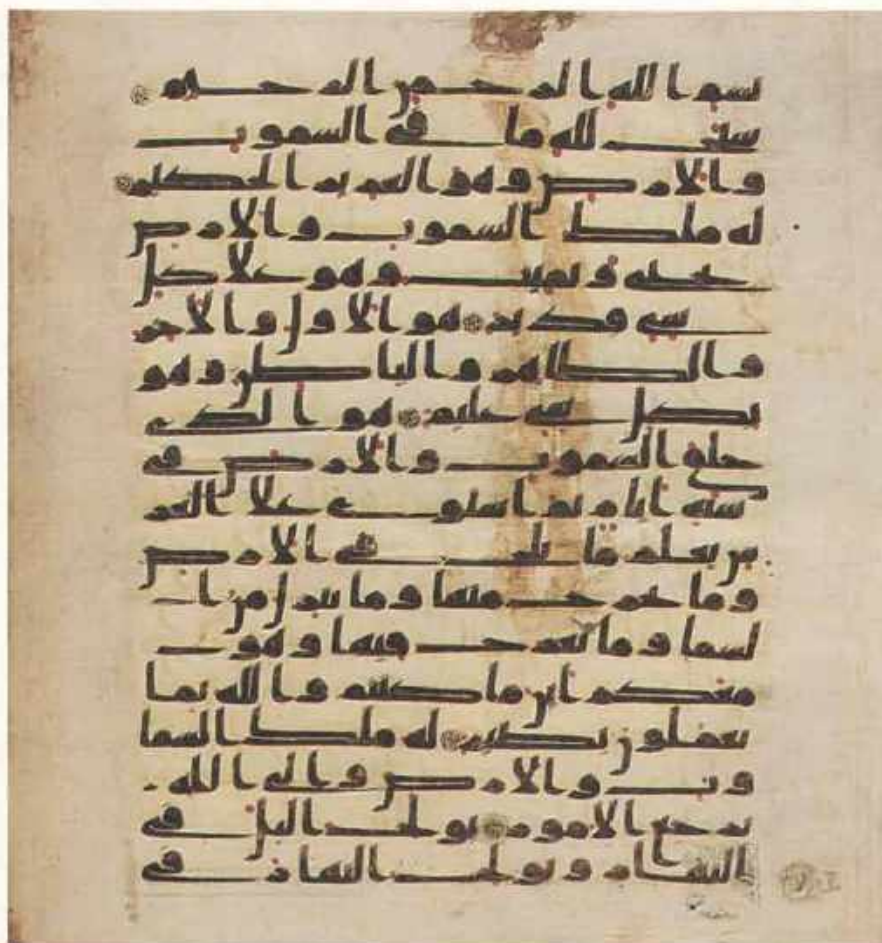 بسم الله الرحمن الرحيم
سبح لله ما في السموت
والارض وهو العزيز الحكيم
له ملك السموت والارض
يحيى ويميت وهو علا كل
شى قدير هو الاول والاخر
والظاهر والباطن وهو
بكل شى عليم هو الذى
خلق السموت والارض فى
ستة ايام ثم استوى علا العر
ش يعلم ما يلج فى الارض
وما يخرج منها وما ينزل من ا
لسما وما يعرج فيها وهو
معكم اين ما كنتم والله بما
تعملون بصير له ملك السما
وت والارض والى الله
ترجع الامور يولج اليل فى
النهار ويولج النهار فى